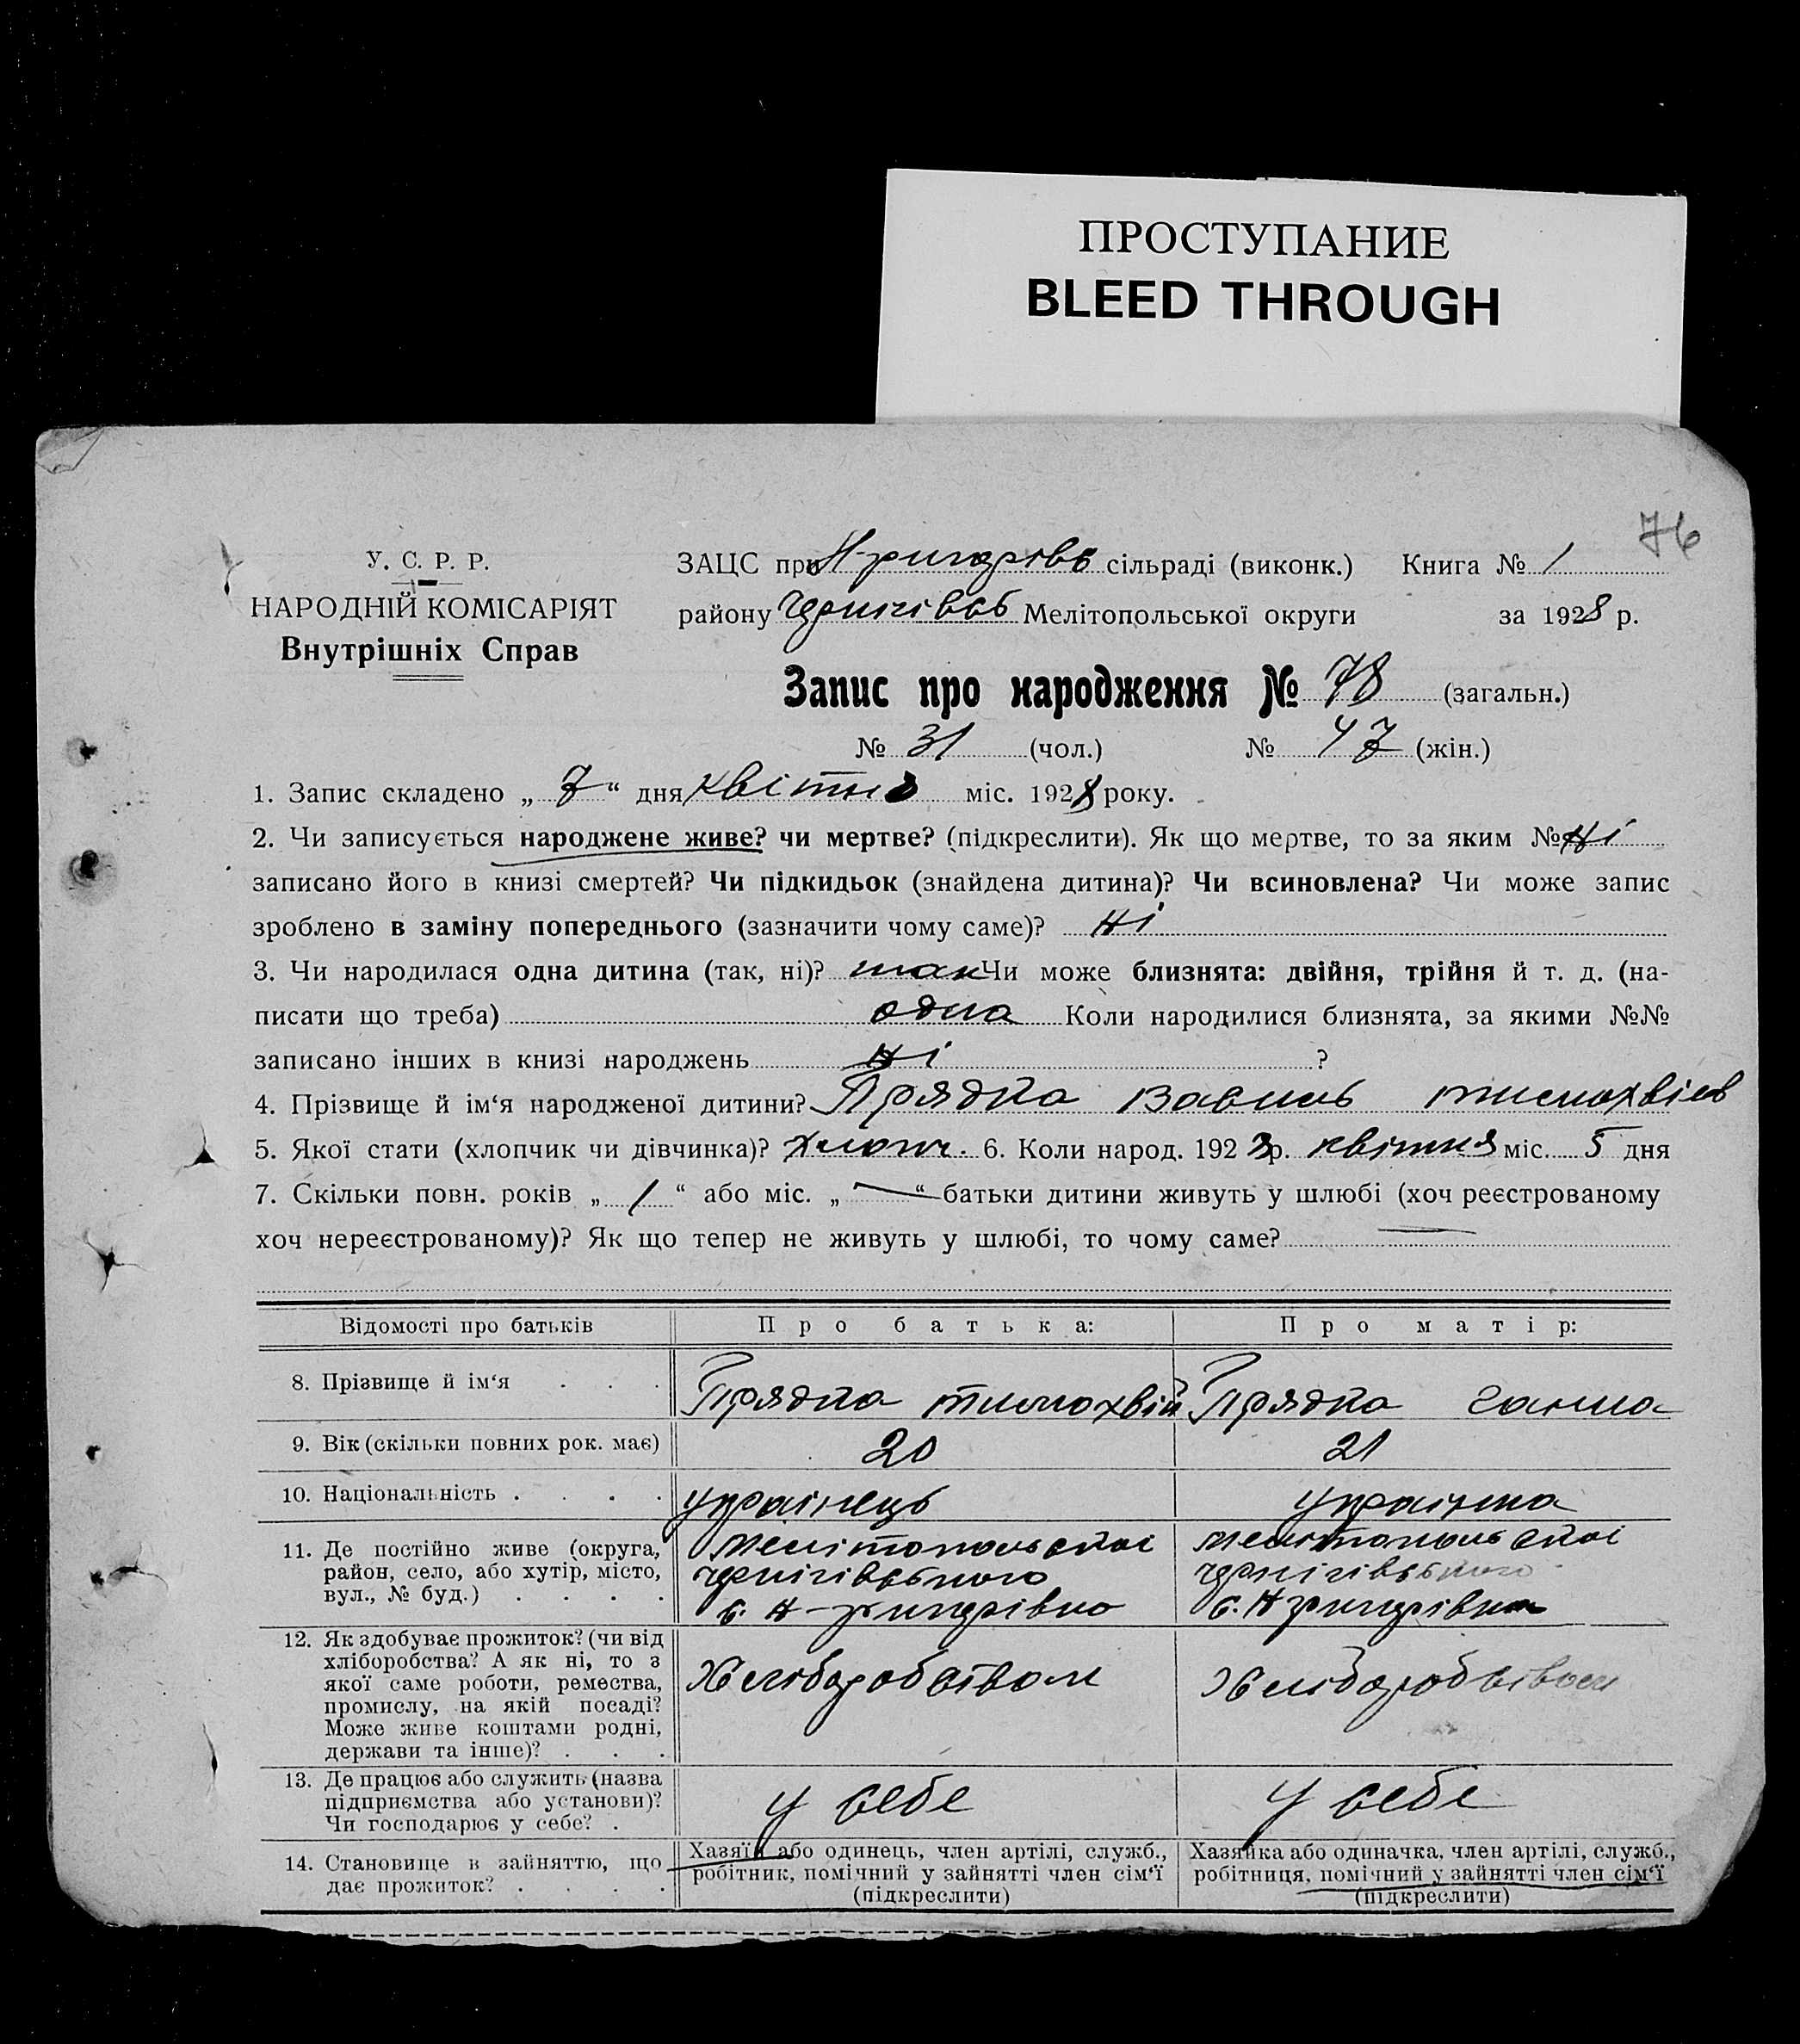 ПРОСТУПАНИЕ
BLEED THROUGH
76
У. С. Р. Р.
НАРОДНІЙ КОМІСАРІЯТ
Внутрішніх Справ
ЗАЦС при сільраді (виконк.) Книга № 1
району Мелітопольської округи за 1928 р.
Запис про народження № 78 (загальн.)
№ 31 (чол.) № 47 (жін.)
1. Запис складено „ 7 “ дня квітня міс. 1928 року.
2. Чи записується народжене живе? чи мертве? (підкреслити). Як що мертве, то за яким № ні
записано його в книзі смертей? Чи підкидьок (знайдена дитина)? Чи всиновлена? Чи може запис
зроблено в заміну попереднього (зазначити чому саме)? ні
3. Чи народилася одна дитина (так, ні)? так Чи може близнята: двійня, трійня й т. д. (на-
писати що треба) одна Коли народилися близнята, за якими №№
записано інших в книзі народжень ні ?
4. Прізвище й ім‘я народженої дитини? Прядка
5. Якої стати (хлопчик чи дівчинка)? хлопч. 6. Коли народ. 192 р. квітня міс. 5 дня
7. Скільки повн. років „ 1 “ або міс. „ — “ батьки дитини живуть у шлюбі (хоч реєстрованому
хоч нереєстрованому)? Як що тепер не живуть у шлюбі, то чому саме? —
Відомості про батьків
Про батька:
Про матір:
8. Прізвище й ім‘я . . .
Прядка тимохвій
Прядка ганна
9. Вік (скільки повних рок. має)
20
21
10. Національність . . . .
українець
українка
11. Де постійно живе (округа,
район, село, або хутір, місто,
вул., № буд.) . . . .
Мелітопольської
чернігівського
с. Н-григорівка
Мелітопольської
чернігівського
с. Н григорівка
12. Як здобуває прожиток? (чи від
хліборобства? А як ні, то з
якої саме роботи, ремества,
промислу, на якій посаді?
Може живе коштами родні,
держави та інше)? . . .
Хліборобством
Хліборобством
13. Де працює або служить (назва
підприємства або установи)?
Чи господарює у себе? .
у себе
у себе
14. Становище в зайняттю, що
дає прожиток? . . . .
Хазяїн або одинець, член артілі, служб.,
робітник, помічний у зайнятті член сім‘ї
(підкреслити)
Хазяйка або одиначка, член артілі, служб.,
робітниця, помічний у зайнятті член сім‘ї
(підкреслити)